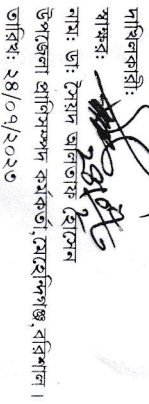 দাখিলকারী:
স্বাক্ষর:
নাম: ডা: সৈয়দ আলতাফ হোসেন
উপজেলা প্রাণিসম্পদ কর্মকর্তা, মেহেন্দিগঞ্জ, বরিশাল।
তারিখ: ২৪/০৭/২০২৩